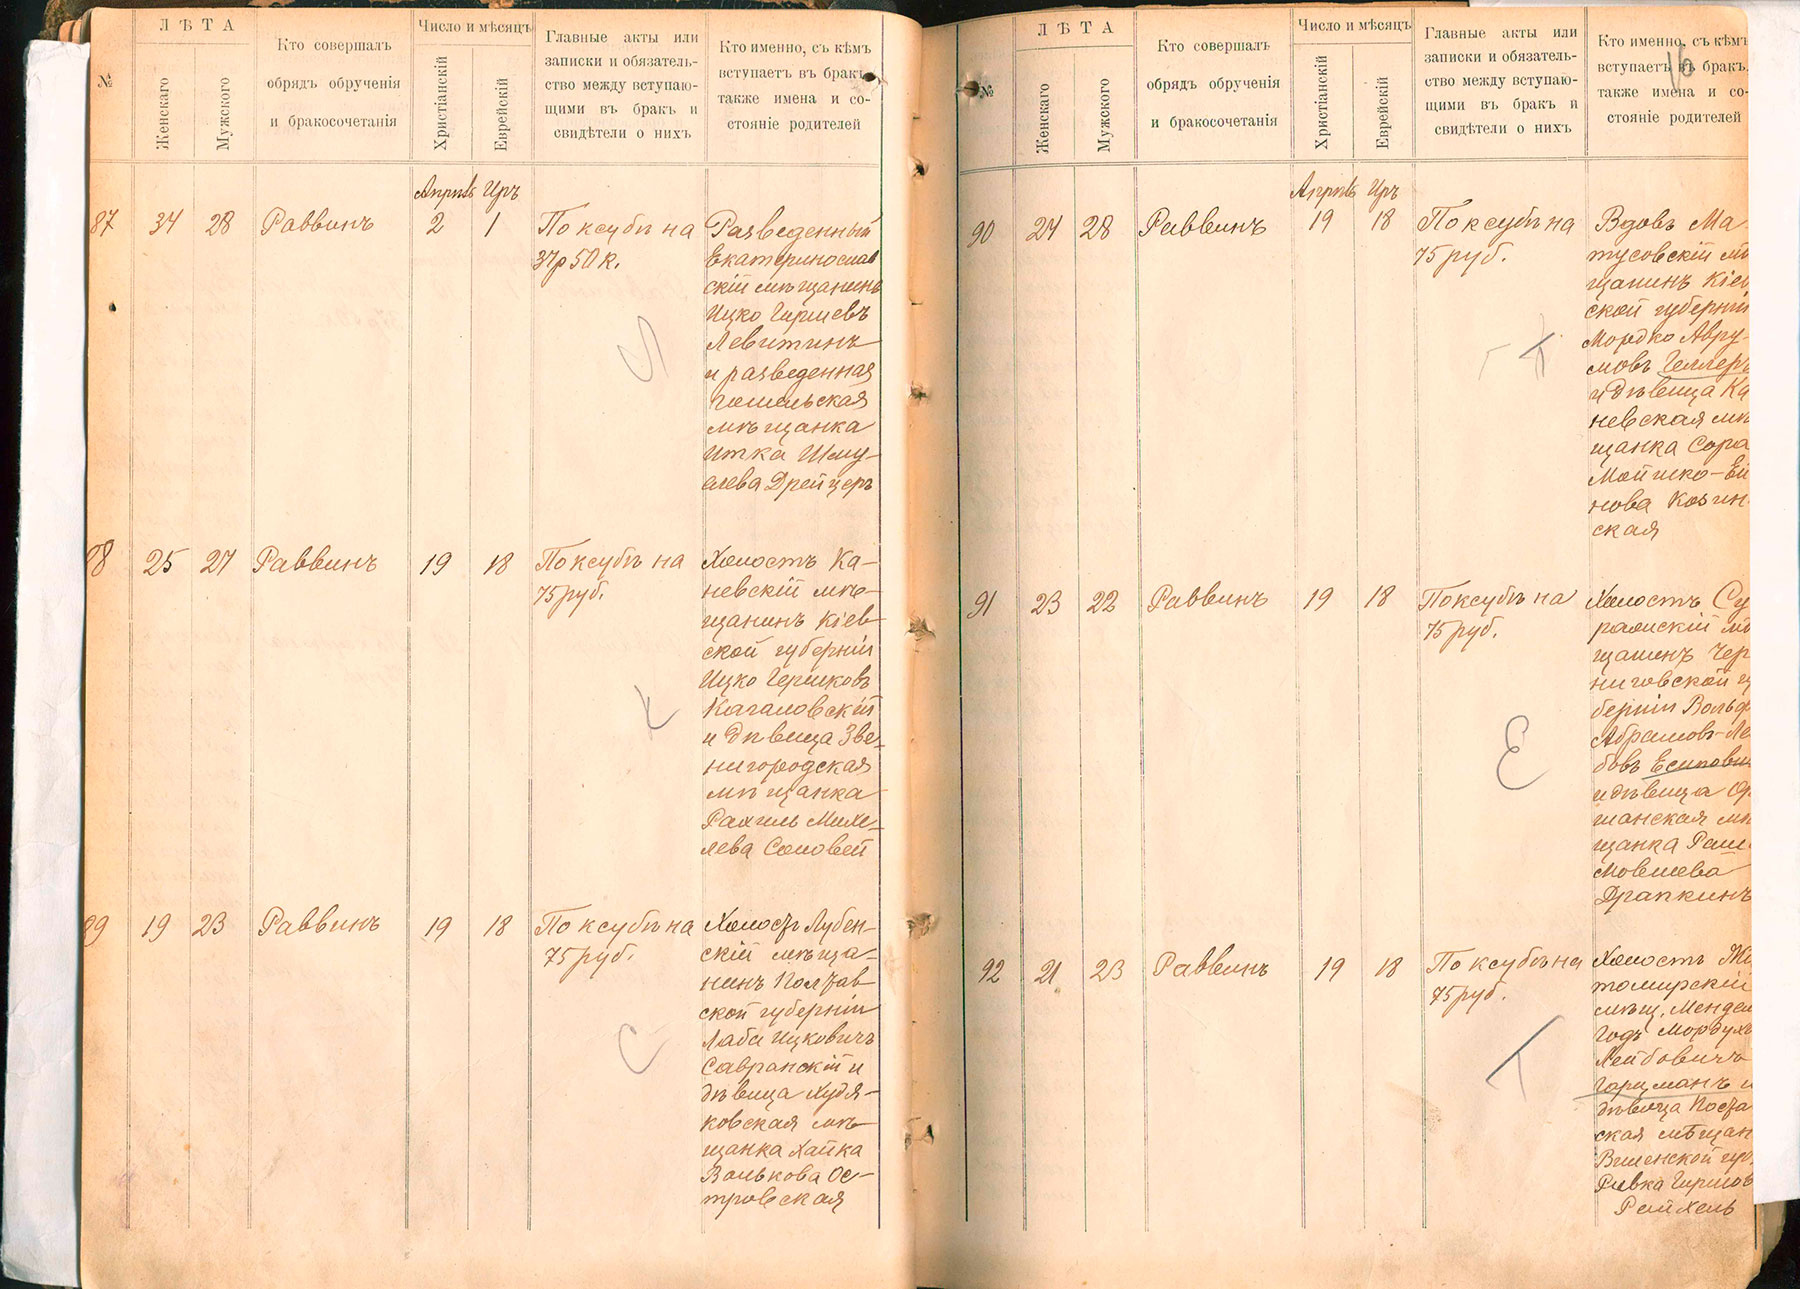 №
ЛѢТА
Женскаго
Мужского
Кто совершалъ
обрядъ обрученія
и бракосочетанія
Число и мѣсяцъ
Христіанскій
Еврейскій
Главные акты или
записки и обязатель-
ство между вступаю-
щими въ бракъ и
свидѣтели о нихъ
Кто именно, съ кѣмъ
вступаетъ въ бракъ,
также имена и со-
стояніе родителей
Апрѣль Иръ
87 34 28 Раввинъ 2 1
По ксубѣ на
37р 50 к.
Разведенный
Екатеринослав
скій мѣщанинъ
Ицко Гиршевъ
Левитинъ
и разведенная
мѣщанка
Итка Шму-
лева Дрейцеръ
88 25 27 Раввинъ 19 18
По ксубѣ на
75 руб.
Холостъ Ка-
невскій мѣ-
щанинъ Кіев-
ской губерніи
Ицко Гершковъ
Кагаловскій
и дѣвица Зве-
нигородская
мѣщанка
Рахиль Михе-
лева Соловей
89 19 23 Раввинъ 19 18
По ксубѣ на
75 руб.
Холостъ Лубен-
скій мѣща-
нинъ Полтав
ской губерніи
Лаба Ицковичъ
Савранскій и
дѣвица Худя-
ковская мѣ-
щанка Хайка
Волькова Ос-
тровская
16
№
ЛѢТА
Женскаго
Мужского
Кто совершалъ
обрядъ обрученія
и бракосочетанія
Число и мѣсяцъ
Христіанскій
Еврейскій
Главные акты или
записки и обязатель-
ство между вступаю-
щими въ бракъ и
свидѣтели о нихъ
Кто именно, съ кѣмъ
вступаетъ въ бракъ,
также имена и со-
стояніе родителей
Апрѣль Иръ
90 24 28 Раввинъ 19 18
По ксубѣ на
75 руб.
Вдовъ Ма-
тусовскій мѣ
щанинъ Кіев
ской губерніи
Мордко Авру-
мовъ Геллеръ
и дѣвица Ка
невская мѣ
щанка Сора
Мошко-Ей
нова Козин
ская
91 23 22 Раввинъ 19 18
По ксубѣ на
75 руб.
Холостъ Су
ражскій мѣ
щанинъ Чер
ниговской гу
берніи Вольф
Абрамовъ-Ле
бовъ Есипович
и дѣвица Ор
шанская мѣ
щанка Раш
Мовшева
Драпкинъ
92 21 23 Раввинъ 19 18
По ксубѣ на
75 руб.
Холостъ Жи
томирскій
мѣщ. Мендел
Мордухъ
Лейбовичъ
Гарцманъ и
дѣвица
ская мѣщан
Виленской губ.
Ривка Гиршов
Райхель